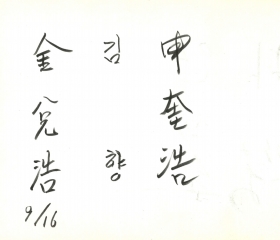 申奎浩
김향
金兌浩
9/16